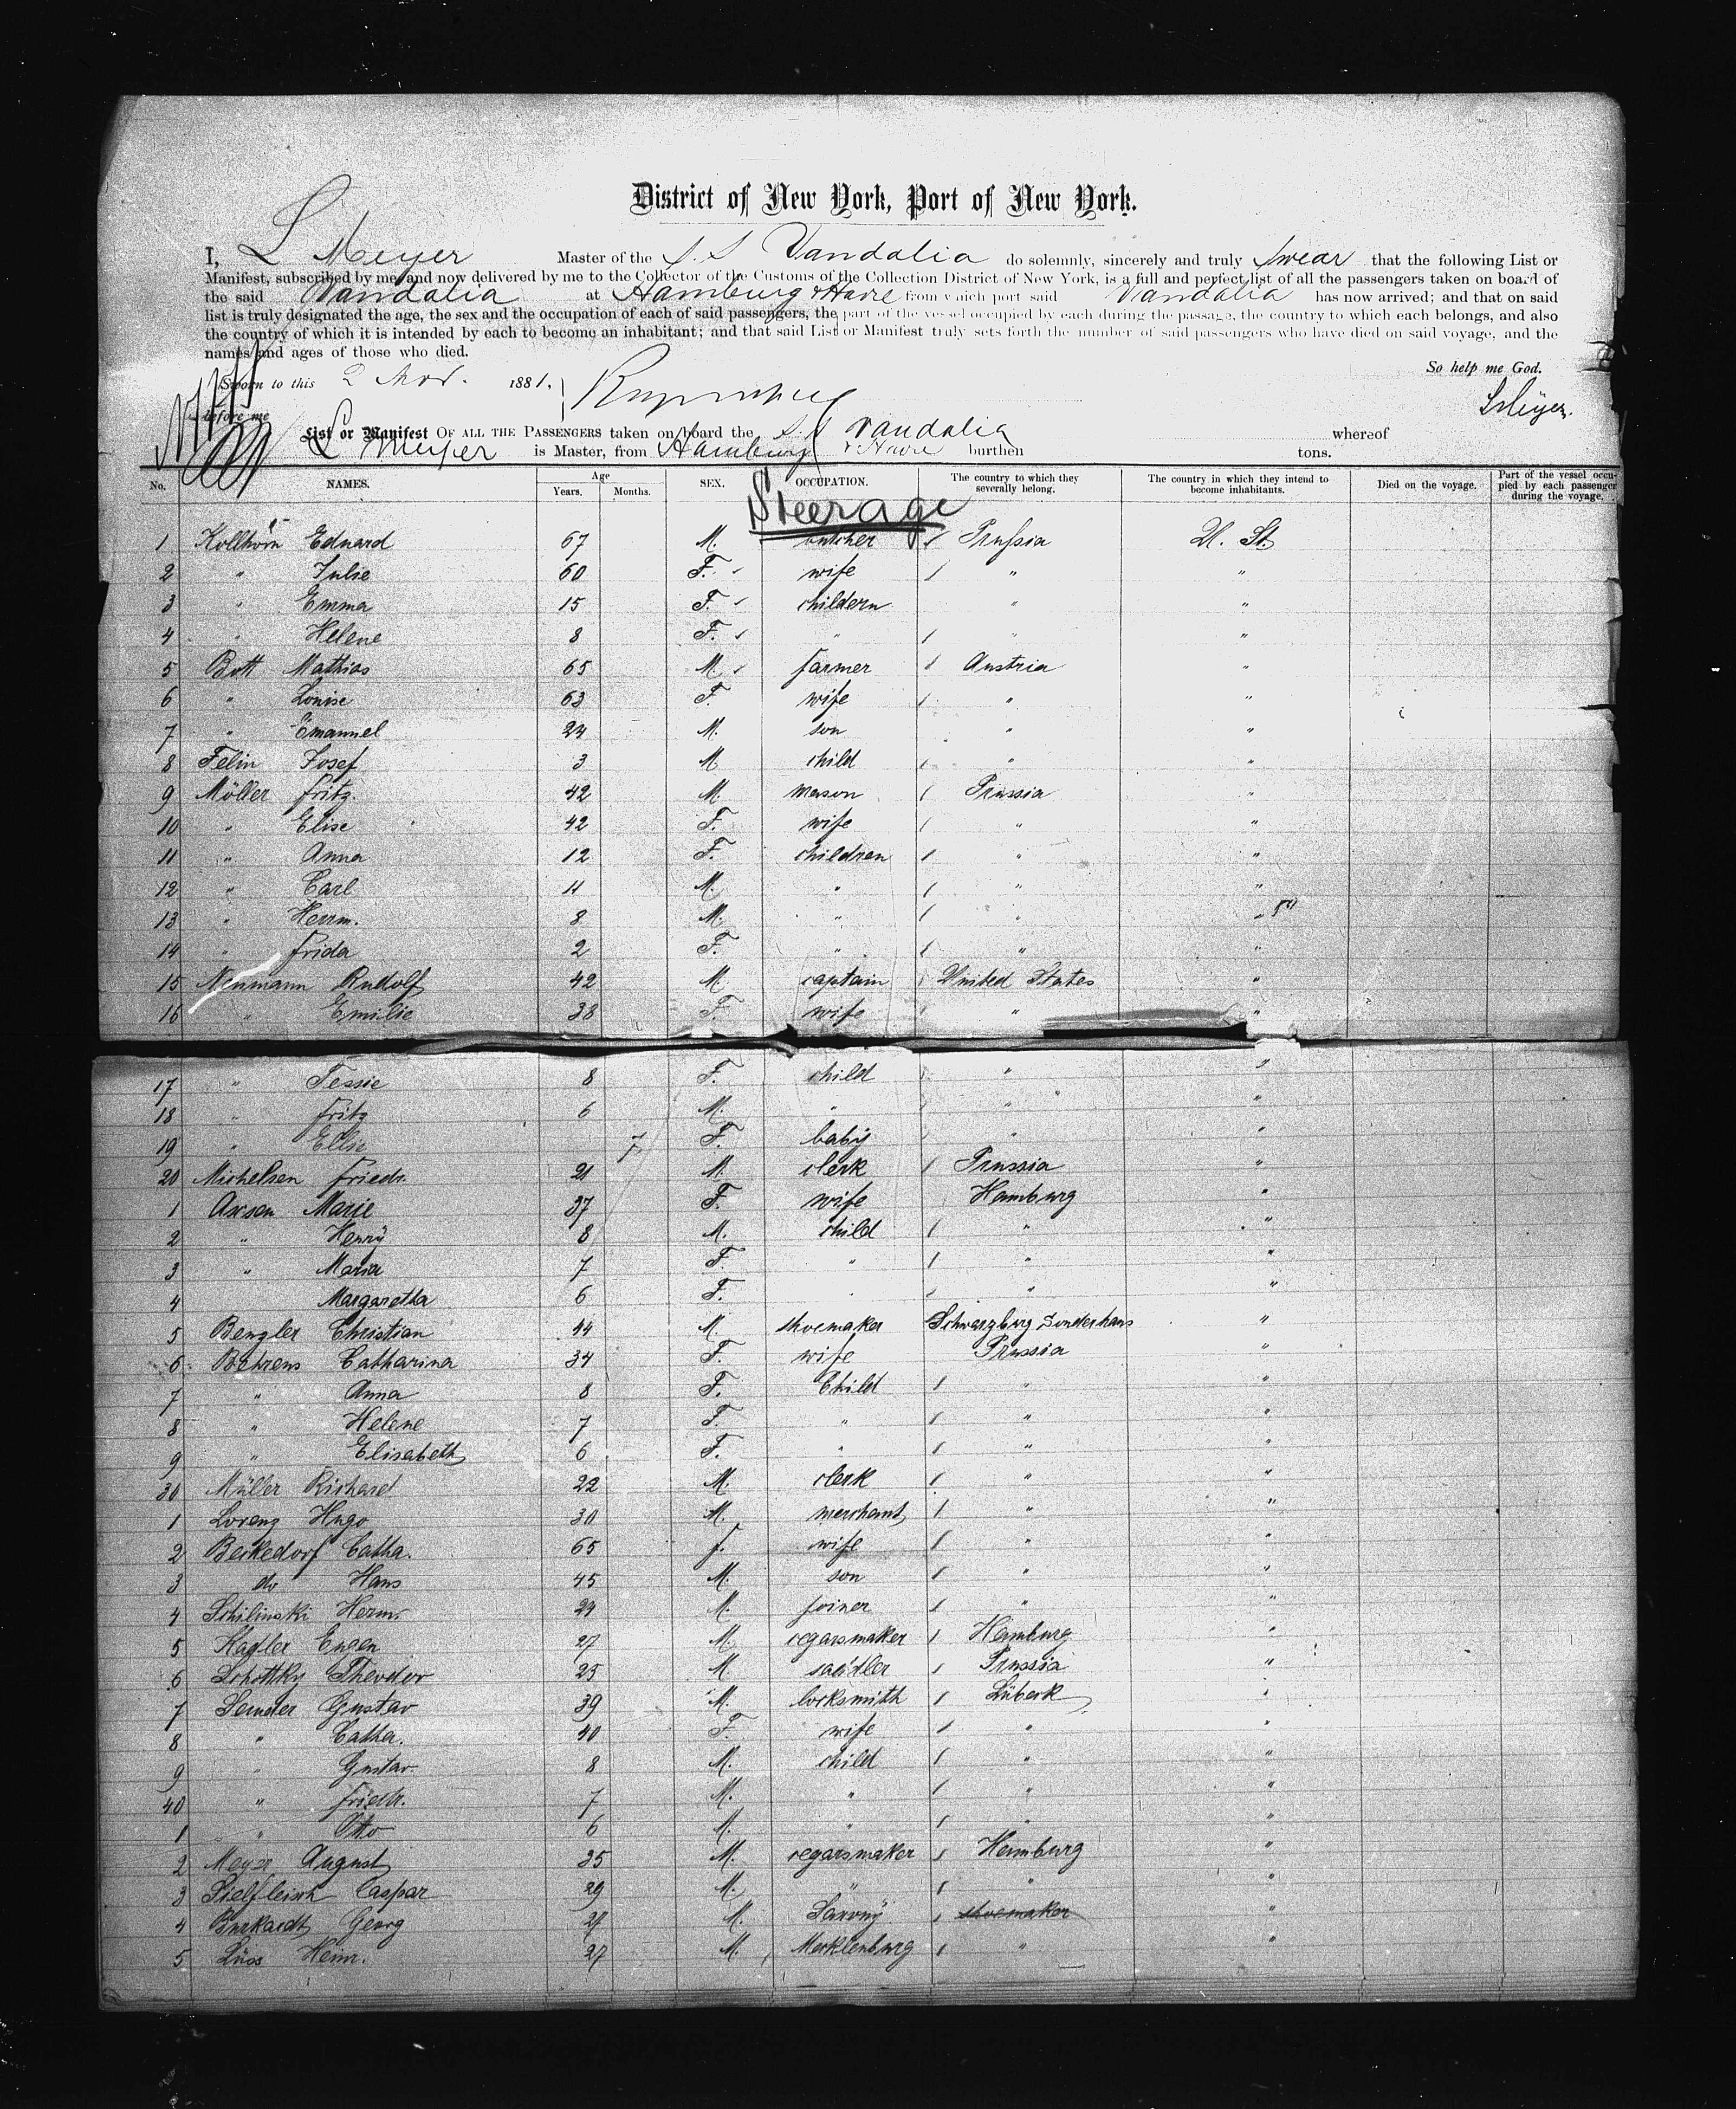 District of New York, Port of New York.
I, L Meyer Master of the S. S Vandalia do solemnly, sincerely and truly swear that the following List or
Manifest, subscribed by me and now delivered by me to the Collector of the Customs of the Collection District of New York, is a full and perfect list of all the passengers taken on board of
the said Vandalia at Hamburg & Havre from which port said Vandalia has now arrived; and that on said
list is truly designated the age, the sex and the occupation of each of said passengers, the part of the vessel occupied by each during the passage, the country to which each belongs, and also
the country of which it is intended by each to become an inhabitant; and that said List or Manifest truly sets forth the number of said passengers who have died on said voyage, and the
names and ages of those who died.
So help me God.
Sworn to this 2 Nov. 1881,
before me
L Meyer.
List or Manifest OF ALL THE PASSENGERS taken on board the S. S Vandalia whereof
L Meyer is Master, from Hamburg & Havre burthen tons.
No. NAMES. Age Years. Months. SEX. OCCUPATION. The country to which they severally belong. The country in which they intend to become inhabitants. Died on the voyage. Part of the vessel occupied by each passenger during the voyage.
Steerage
1 Kollhorn Eduard 67 M. butcher Prussia U. St.
2 " Julie 60 F. wife " "
3 " Emma 15 F. childern " "
4 " Helene 8 F. " " "
5 Bott Mathias 65 M. farmer Austria "
6 " Louise 63 F. wife " "
7 " Emanuel 24 M. son " "
8 Felin Josef 3 M. child " "
9 Möller Fritz. 42 M. mason Prussia "
10 " Elise 42 F. wife " "
11 " Anna 12 F. children " "
12 " Carl 11 M. " " "
13 " Herrm. 8 M. " " "
14 " Frida 2 F. " " "
15 Neumann Rudolf 42 M. captain United States "
16 " Emilie 38 F. wife " "
17 " Jessie 8 F. child " "
18 " Fritz 6 M. " " "
19 " Ellie 7 F. baby " "
20 Michelsen Friedr. 21 M. clerk Prussia "
1 Axsen Marie 37 F. wife Hamburg "
2 " Henry 8 M. child " "
3 " Maria 7 F. " " "
4 Margaretha 6 F. " " "
5 Bengler Christian 44 M. shoemaker Schwarzburg Sonderhaus "
6 Behrens Catharina 34 F. wife Prussia "
7 " Anna 8 F. Child " "
8 " Helene 7 F. " " "
9 " Elisabeth 6 F. " " "
30 Müller Richard 22 M. clerk " "
1 Lorenz Hugo 30 M. merchant " "
2 Beckedorf Catha. 65 F. wife " "
3 do Hans 45 M. son " "
4 Schilinski Herm. 29 M. joiner " "
5 Kadler Eugen 27 M. cegarsmaker Hamburg "
6 Schottky Theodor 25 M. sadtler Prussia "
7 Semder Gustav 39 M. locksmith Lübeck "
8 " Catha. 40 F. wife " "
9 " Gustav. 8 M. child " "
40 " Friedr. 7 M. " " "
1 " Otto 6 M. " " "
2 Meyer August 35 M. cegarsmaker Hamburg "
3 Sielfleisch Caspar 29 M. " " "
4 Burkardt Georg 27 M. Saxony shoemaker "
5 Lüss Heinr. 27 M. Mecklenburg " "